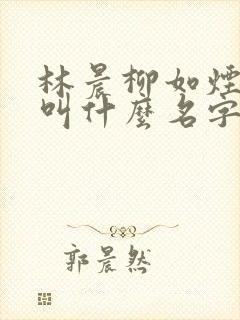 林晨柳如煙
叫什麼名字
郭晨然